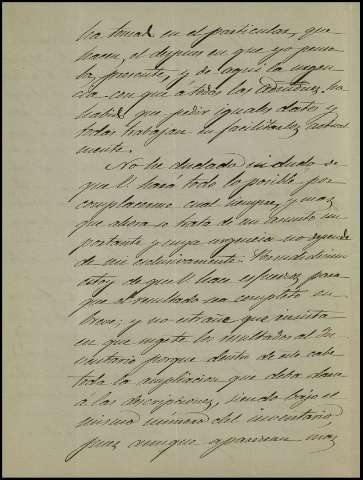 ha tomado en el particular, que
hacen, el                 en que yo pensa
ba, presente, y de aqui la urgen
cia con que a todos los          ha
habido que pedir iguales datos y
todos trabajan en facilitarles
mente.
No he dudado ni dudo de
que V. hará todo lo posible por
complacerme cual siempre, y mas
que ahora se trata de un asunto im
portante y cuya urgencia no depende
de mi exclusivamente.
estoy de que V. hará esfuerzos para
que el resultado sea completo en
breve; y no estrañe que insista
en que sugete los resultados al In
ventario porque dentro de el cabe
toda la ampliacion que deba darse
á las descripciones, siendo bajo el
mismo número del inventario,
pues aunque aparezcan mas